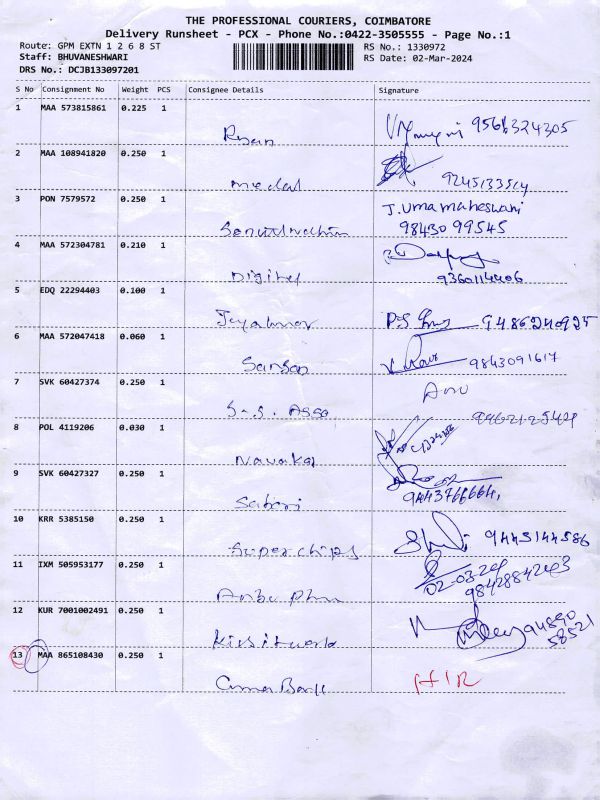 THE PROFESSIONAL COURIERS, COIMBATORE
Delivery Runsheet - PCX - Phone No.:0422-3505555 - Page No.:1
Route: GPM EXTN 1 2 6 8 ST RS No.: 1330972
Staff: BHUVANESHWARI RS Date: 02-Mar-2024
DRS No.: DCJB133097201
S No Consignment No Weight PCS Consignee Details Signature
1 MAA 573815861 0.225 1
Ryan 9566324305
2 MAA 108941820 0.250 1
medal 9245133514
3 PON 7579572 0.250 1 J. Uma maheswari
98430 99545
4 MAA 572304781 0.210 1
Digitel 9360114406
5 EDQ 22294403 0.100 1
9486240925
6 MAA 572047418 0.060 1
Sansan 9843091617
7 SVK 60427374 0.250 1 Anu
S.S. Asso
8 POL 4119206 0.030 1
Navakar
9 SVK 60427327 0.250 1
Saberi 9443766664
10 KRR 5385150 0.250 1
Superchips 9445144586
11 IXM 505953177 0.250 1
02-03-24
9842884243
12 KUR 7001002491 0.250 1
94890
58521
13 MAA 865108430 0.250 1
Bank